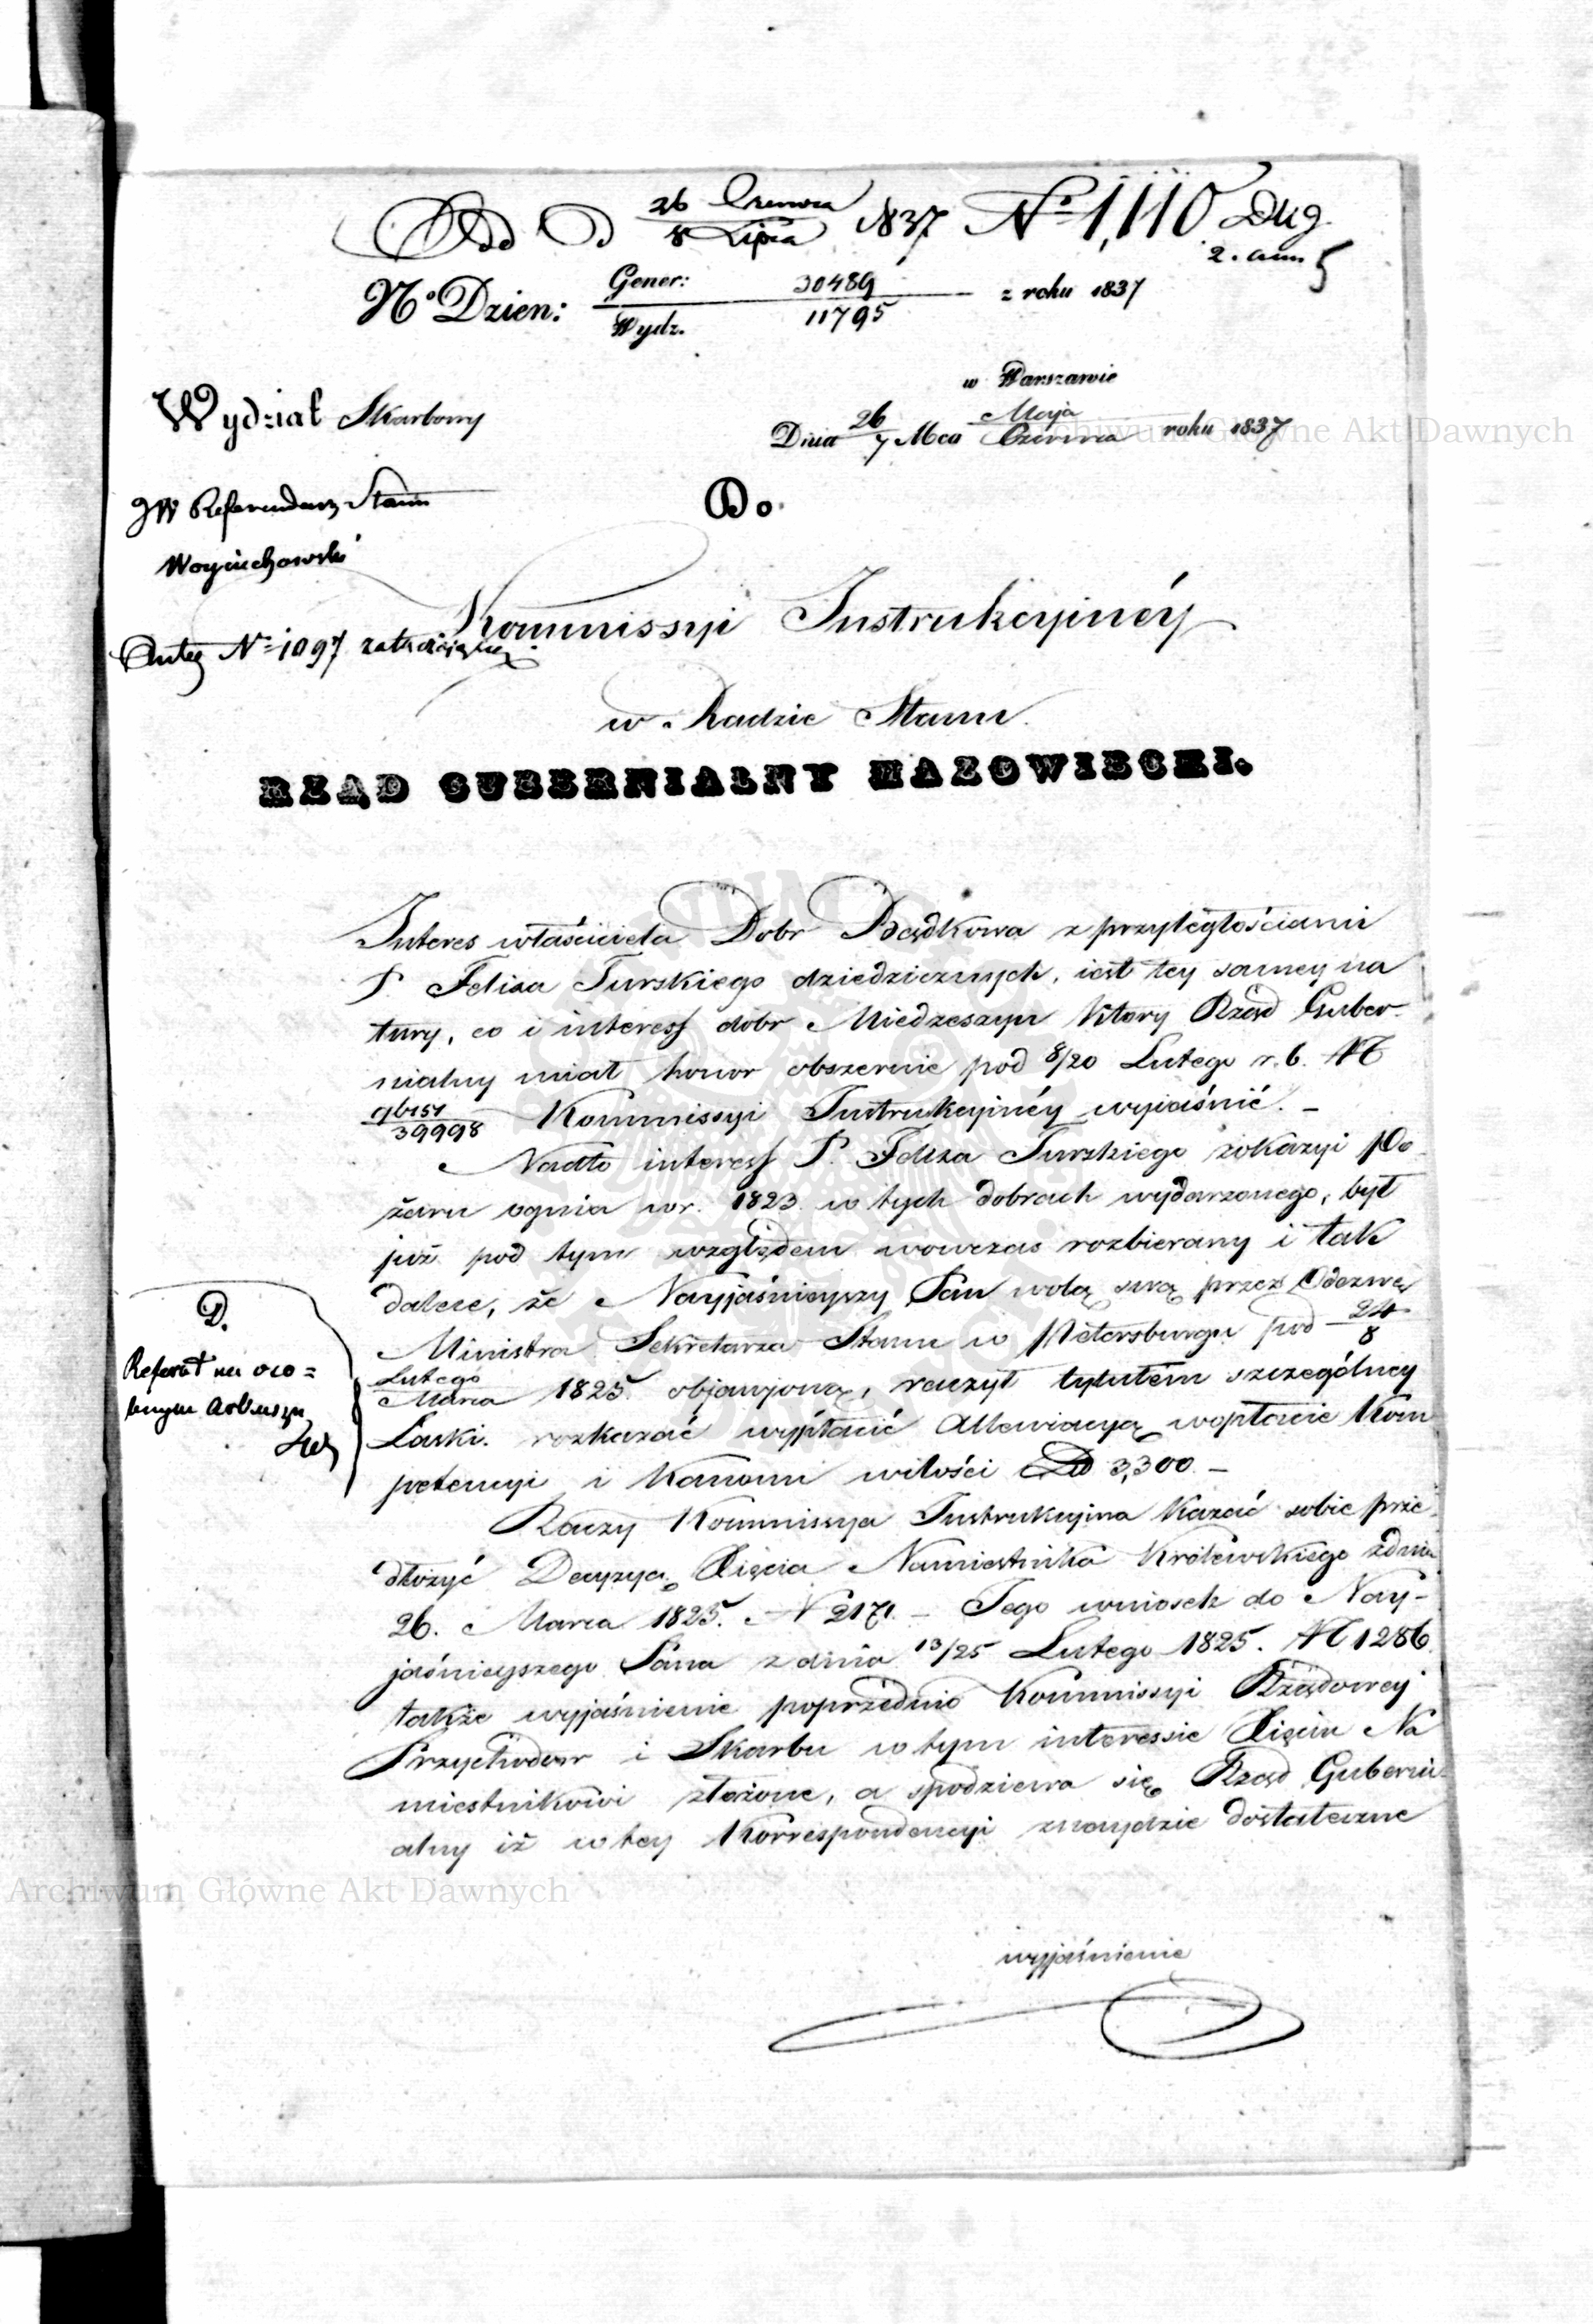 Odd D 26 Czerwca / 8 Lipca 1837 № 1,110 Dług.
2. ann 5
N° Dzien: Gener: 30489 / Wydz. 11795 z roku 1837
w Warszawie
Wydział Skarbowy
Dnia 26/7 Mca Maja / Czerwca roku 1837
JW Referendarz Stanu
Do
Woyciechowski
Kommissyi Instrukcyinéy
N° 1097
w Radzie Stanu.
RZĄD GUBERNIALNY MAZOWIECKI.
Interes właściciela Dobr Bądkowa z przyległościami
P. Felixa Turskiego dziedzicznych, iest tey samey na
tury, co i interess dobr Miedzeszyn ktory Rząd Guber-
nialny miał honor obszernie pod 8/20 Lutego r. b. N°
39998 Kommissyi Instrukcyinéy wyiaśnić. –
Nadto interess P. Felixa Turskiego zokazyi Po
żaru ognia w r. 1823 w tych dobrach wydarzonego, był
już pod tym względem wowczas rozbierany i tak
dalece, że Nayjaśnieyszy Pan wolą swą przez Odezwę
Ministra Sekretarza Stanu w Petersburgu pod 24/8
Lutego / Marca 1825 objawioną, raczył tytułem szczególney
Łaski. rozkazać wypłacić Allewiacyą wopłacie Kom
petencyi i Kanonu wilości Zło 3,300 –
D.
Referat na oso=
bnym arkuszu
Raczy Kommissya Instrukcyina kazać sobie prze
dłożyć Decyzyą Xięcia Namiestnika Królewskiego zdnia
26. Marca 1825. N 2171. – Jego wniosek do Nay-
jaśnieyszego Pana z dnia 13/25 Lutego 1825. N° 1286
także wyjaśnienie poprzednio Kommissyi Rządowey
Przychodow i Skarbu w tym interessie Xięciu Na
miestnikowi złożone, a spodziewa się Rząd Guberni-
alny iż w tey Korrespondencyi znaydzie dostateczne
wyjaśnienie
Archiwum Główne Akt Dawnych
Archiwum Główne Akt Dawnych